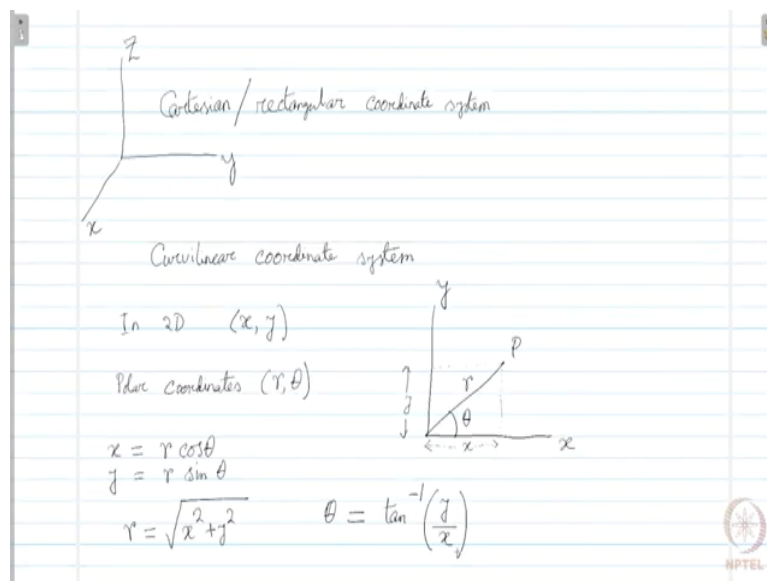 Z
Cartesian/rectangular coordinate system
y
x
Curvilinear coordinate system
y
In 2D (x, y)
P
r
Polar coordinates (r, θ)
y
θ
x
x
x = r cosθ
y = r sin θ
r = √(x² + y²) θ = tan⁻¹(y/x)
NPTEL